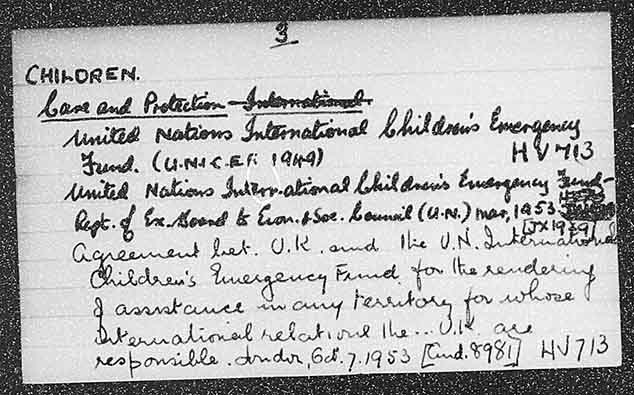 3
CHILDREN.
Care and Protection International.
United Nations International Children's Emergency
Fund. (U.N.I.C.E.F. 1949) HV713
United Nations International Children's Emergency Fund-
Rept. of Ex. Board to Econ. & Soc. Council (U.N.) Mar, 1953.
[JX1979]
Agreement bet. U.K. and the U.N. International
Children's Emergency Fund for the rendering
of assistance in any territory for whose
international relations the.. U.K. are
responsible. London, Oct. 7. 1953 [Cmd. 8981] HV713